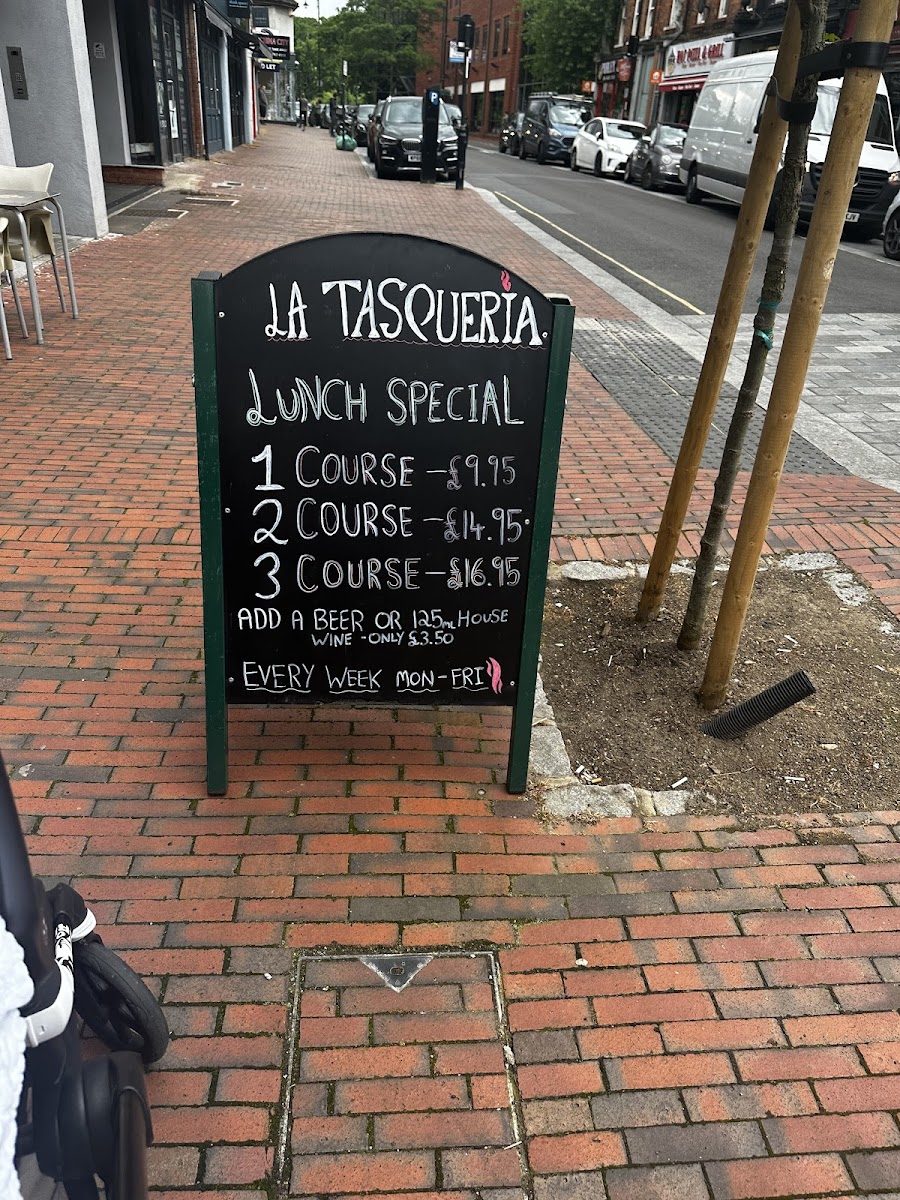 LA TASQUERÍA
LUNCH SPECIAL
1 COURSE - £9.95
2 COURSE - £14.95
3 COURSE - £16.95
ADD A BEER OR 125ml HOUSE
WINE - ONLY £3.50
EVERY WEEK MON-FRI
TO LET
P